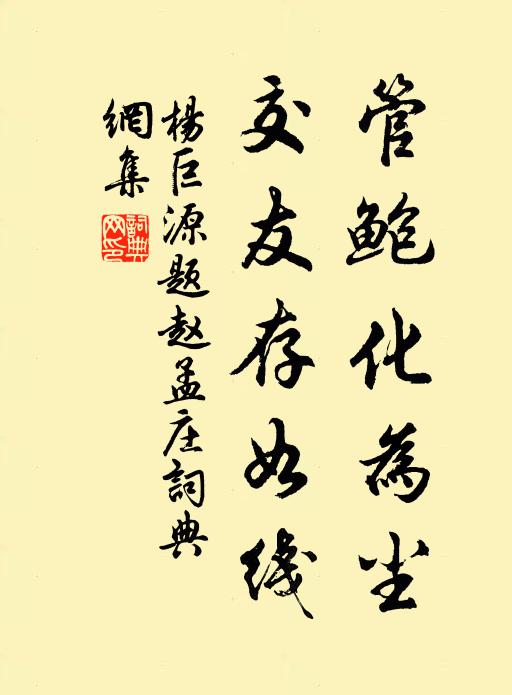 管鲍化為尘
交友存如线
楊巨源题赵孟庄詞典
網集
詞典
网印